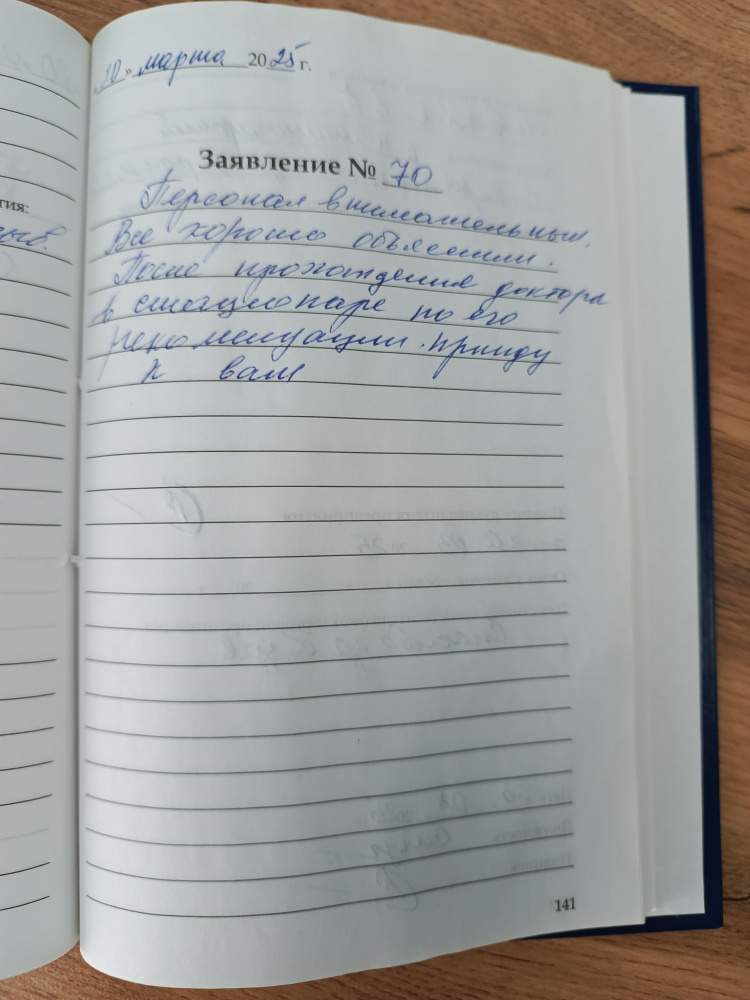 «20» марта 2025 г.
Заявление № 70
Персонал внимательный.
Все хорошо объяснили.
После прохождения доктора
в стационаре по его
рекомендации. прииду
к вам
тия:
141